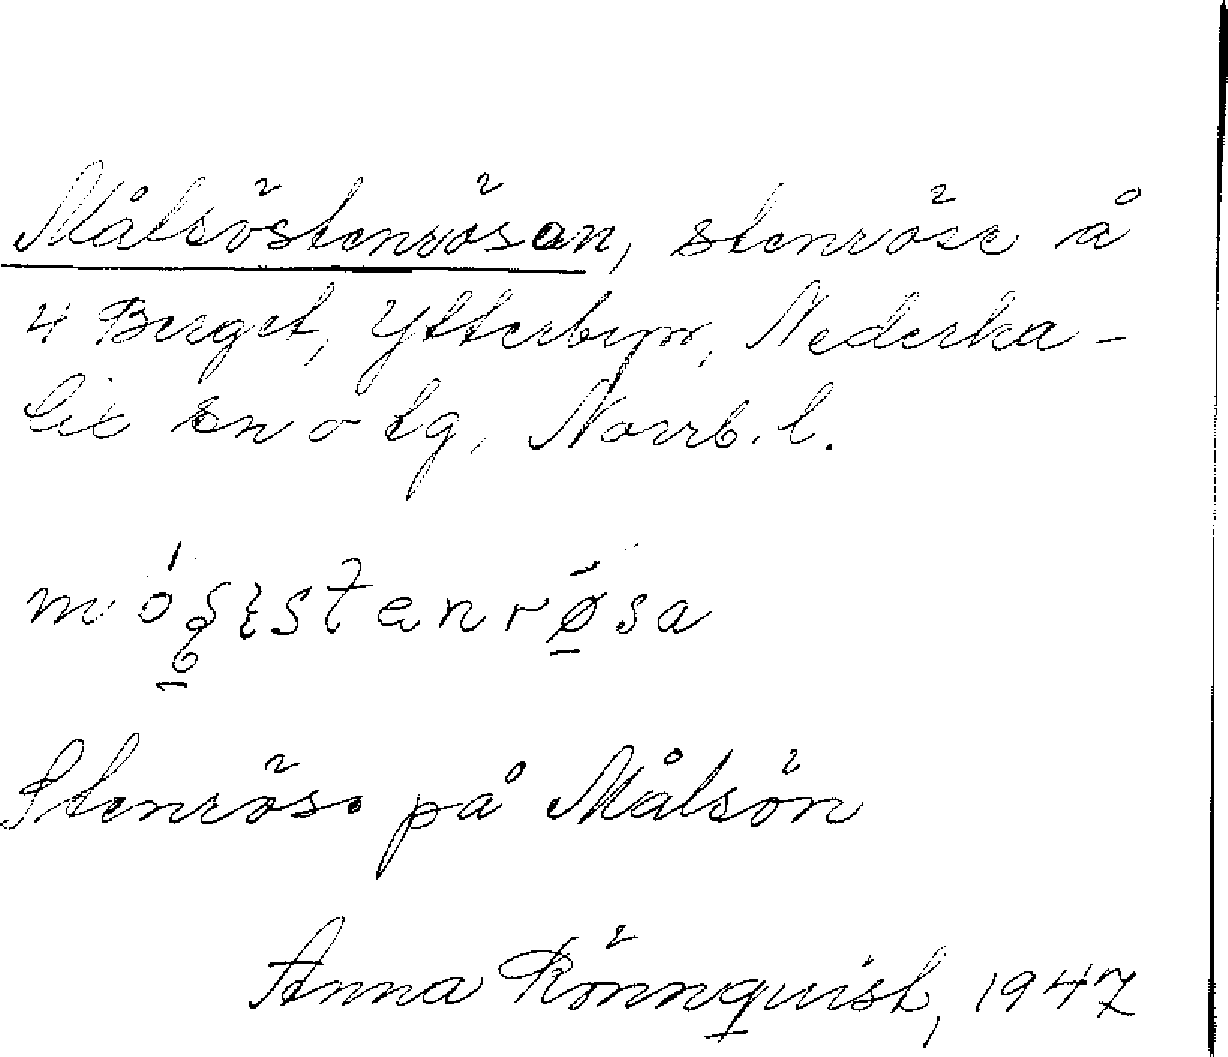 Målsöstenrösan, stenröse å
4 Berget, Ytterbyn, Nederka-
lix sn o tg, Norrb. l.
Stenröse på Målsön
Anna Rönnquist, 1947